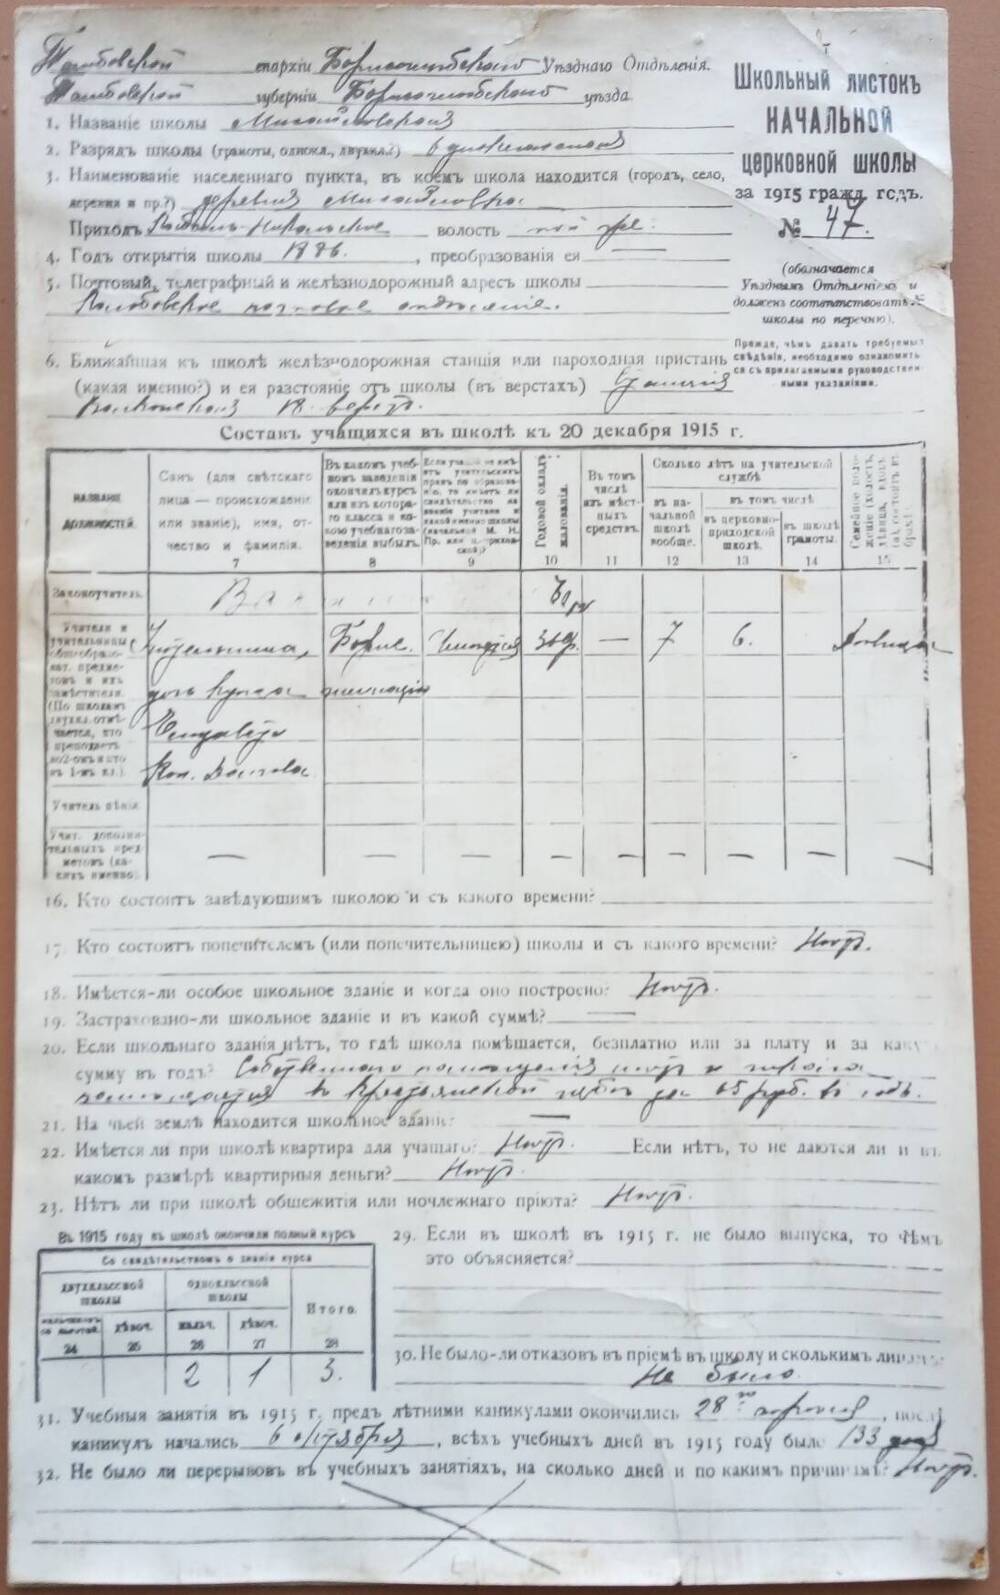 Тамбовской епархіи Борисоглѣбского Уѣзднаго Отдѣленія.
Тамбовской губерніи Борисоглѣбского уѣзда.
Школьный листокъ
НАЧАЛЬНОЙ
церковной школы
за 1915 гражд. годъ.
№ 47.
(обозначается
Уѣзднымъ Отдѣленіемъ и
долженъ соотвѣтствовать №
школы по перечню).
Прежде, чѣмъ давать требуемыя
свѣдѣнія, необходимо ознакомить-
ся съ прилагаемыми руководствен-
ными указаніями.
1. Названіе школы Михайловская
2. Разрядъ школы (грамоты, однокл., двухкл.?) одноклассная
3. Наименованіе населеннаго пункта, въ коемъ школа находится (городъ, село,
деревня и пр.?) деревня Михайловка
Приходъ волость той же.
4. Годъ открытія школы 1886. , преобразованія ея —
5. Почтовый, телеграфный и желѣзнодорожный адресъ школы
почтовое отдѣленіе.
6. Ближайшая къ школѣ желѣзнодорожная станція или пароходная пристань
(какая именно?) и ея разстояніе отъ школы (въ верстахъ) Станція
18 верстъ.
Составъ учащихся въ школѣ къ 20 декабря 1915 г.
НАЗВАНІЕ
ДОЛЖНОСТЕЙ.
Санъ (для свѣтскаго
лица — происхожденіе
или званіе), имя, от-
чество и фамилія.
7
Въ какомъ учеб-
номъ заведеніи
окончилъ курсъ
или изъ котора-
го класса и ка-
кого учебнаго за-
веденія выбылъ.
8
Если учащій не имѣ-
етъ учительскихъ
правъ по образова-
нію, то имѣетъ ли
свидѣтельство на
званіе учителя и
какой именно школы
(начальной М. Н.
Пр. или ц.-приход-
ской)?
9
Годовой окладъ
жалованія.
10
Въ томъ
числѣ
изъ мѣст-
ныхъ
средствъ.
11
Сколько лѣтъ на учительской
службѣ
въ на-
чальной
школѣ
вообще.
12
въ томъ числѣ
въ церковно-
приходской
школѣ.
13
въ школѣ
грамоты.
14
Семейное поло-
15
Законоучитель.
Учителя и
учительницы
общеобразо-
ват. предме-
товъ и ихъ
замѣстители.
(По школамъ
двухкл. отмѣ-
чается, кто
преподаетъ
во 2-омъ и кто
въ 1-мъ кл.).
Учительница, Борис. 360 р. — 7 6. дѣвица
гимназія
Елизавета
Учитель пѣнія.
Учит. дополни-
тельныхъ пред-
метовъ (ка-
кихъ именно).
— — — — — — — — —
16. Кто состоитъ завѣдующимъ школою и съ какого времени?
17. Кто состоитъ попечителемъ (или попечительницею) школы и съ какого времени? Нѣтъ.
18. Имѣется-ли особое школьное зданіе и когда оно построено? Нѣтъ.
19. Застраховано-ли школьное зданіе и въ какой суммѣ? —
20. Если школьнаго зданія нѣтъ, то гдѣ школа помѣщается, безплатно или за плату и за какую
сумму въ годъ? Собственного помѣщенія нѣтъ и школа
помѣщается въ крестьянской избѣ за 65 руб. въ годъ.
21. На чьей землѣ находится школьное зданіе? —
22. Имѣется ли при школѣ квартира для учащаго? Нѣтъ. Если нѣтъ, то не даются ли и въ
какомъ размѣрѣ квартирныя деньги? Нѣтъ.
23. Нѣтъ ли при школѣ общежитія или ночлежнаго пріюта? Нѣтъ.
Въ 1915 году въ школѣ окончили полный курсъ
Со свидѣтельствомъ о знаніи курса
двухклассной
школы
одноклассной
школы
Итого.
дѣвоч. мальч. дѣвоч.
24 25 26 27 28
2 1 3.
29. Если въ школѣ въ 1915 г. не было выпуска, то чѣмъ
это объясняется?
30. Не было-ли отказовъ въ пріемѣ въ школу и сколькимъ лицамъ?
Не было.
31. Учебныя занятія въ 1915 г. предъ лѣтними каникулами окончились 28го апрѣля , послѣ
каникулъ начались 6 октября , всѣхъ учебныхъ дней въ 1915 году было 133 дня
32. Не было ли перерывовъ въ учебныхъ занятіяхъ, на сколько дней и по какимъ причинамъ? Нѣтъ.